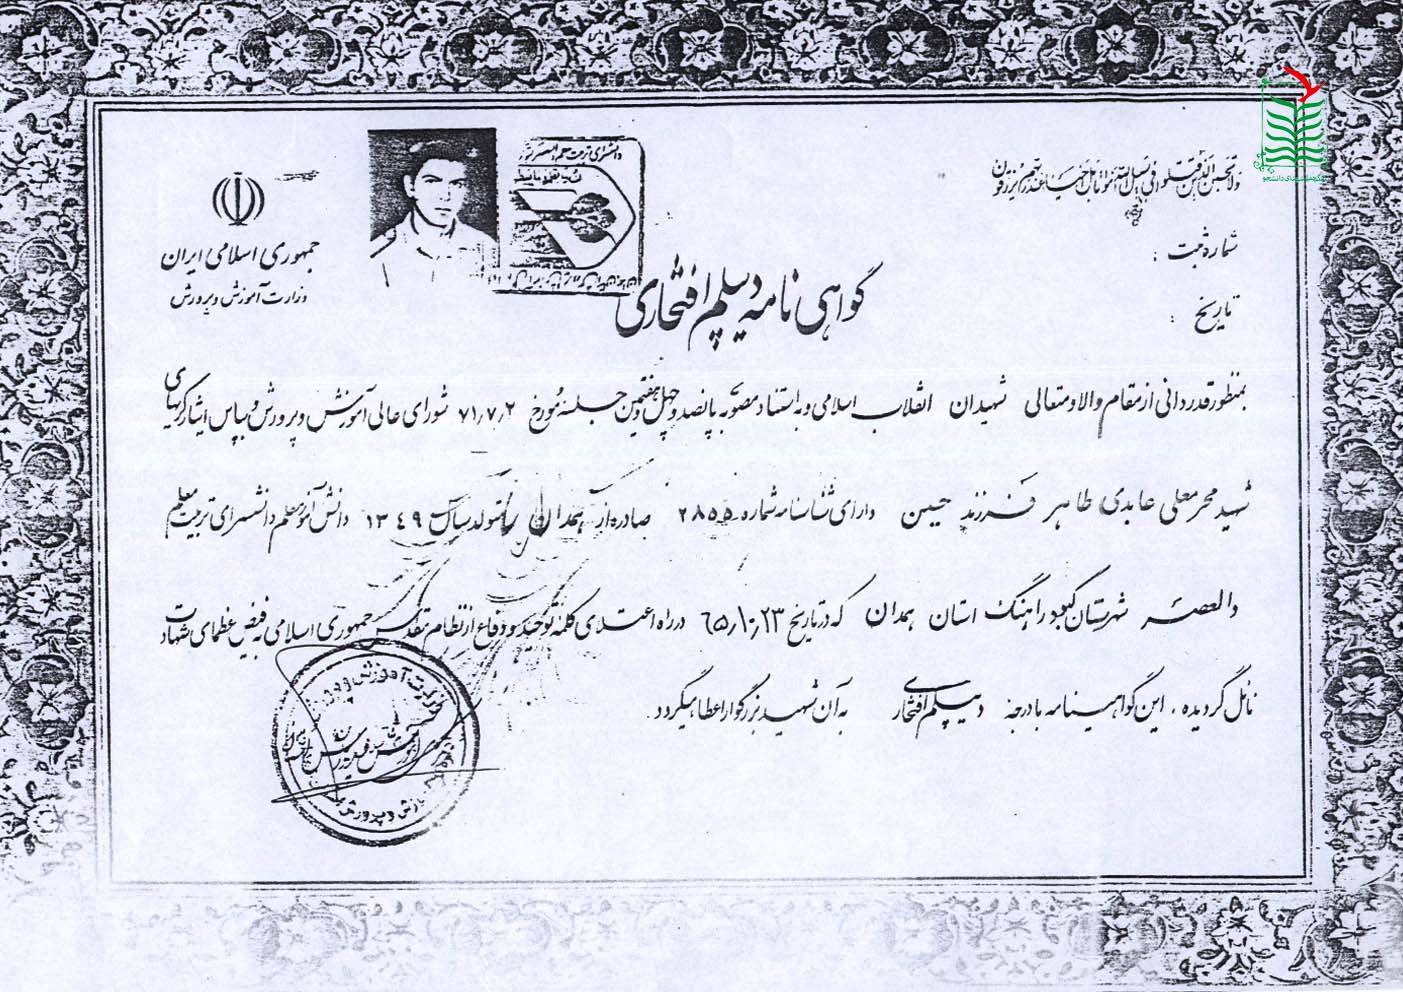 ولا تحسبن الذین قتلوا فی سبیل الله امواتا بل احیاء عند ربهم یرزقون
شماره ثبت :
تاریخ :
جمهوری اسلامی ایران
وزارت آموزش و پرورش
گواهی نامه دیپلم افتخاری
بمنظور قدردانی از مقام والا و متعالی شهیدان انقلاب اسلامی و به استناد مصوبه پانصد و چهل و هفتمین جلسه مورخ ۷۱٫۷٫۲ شورای عالی آموزش و پرورش و بپاس ایثارگریهای
شهید محرمعلی عابدی طاهر فرزند حسین دارای شناسنامه شماره ۲۸۵۵ صادره از همدان متولد سال ۱۳۴۹ دانش آموز معلم دانشسرای تربیت معلم
والعصر شهرستان کبودراهنگ استان همدان که در تاریخ ۶۵٫۱۰٫۲۳ در راه اعتلای کلمه توحید و دفاع از نظام مقدس جمهوری اسلامی به فیض عظمای شهادت
نائل گردیده ، این گواهینامه با درجه دیپلم افتخاری به آن شهید بزرگوار اعطا میگردد
وزارت آموزش و پرورش